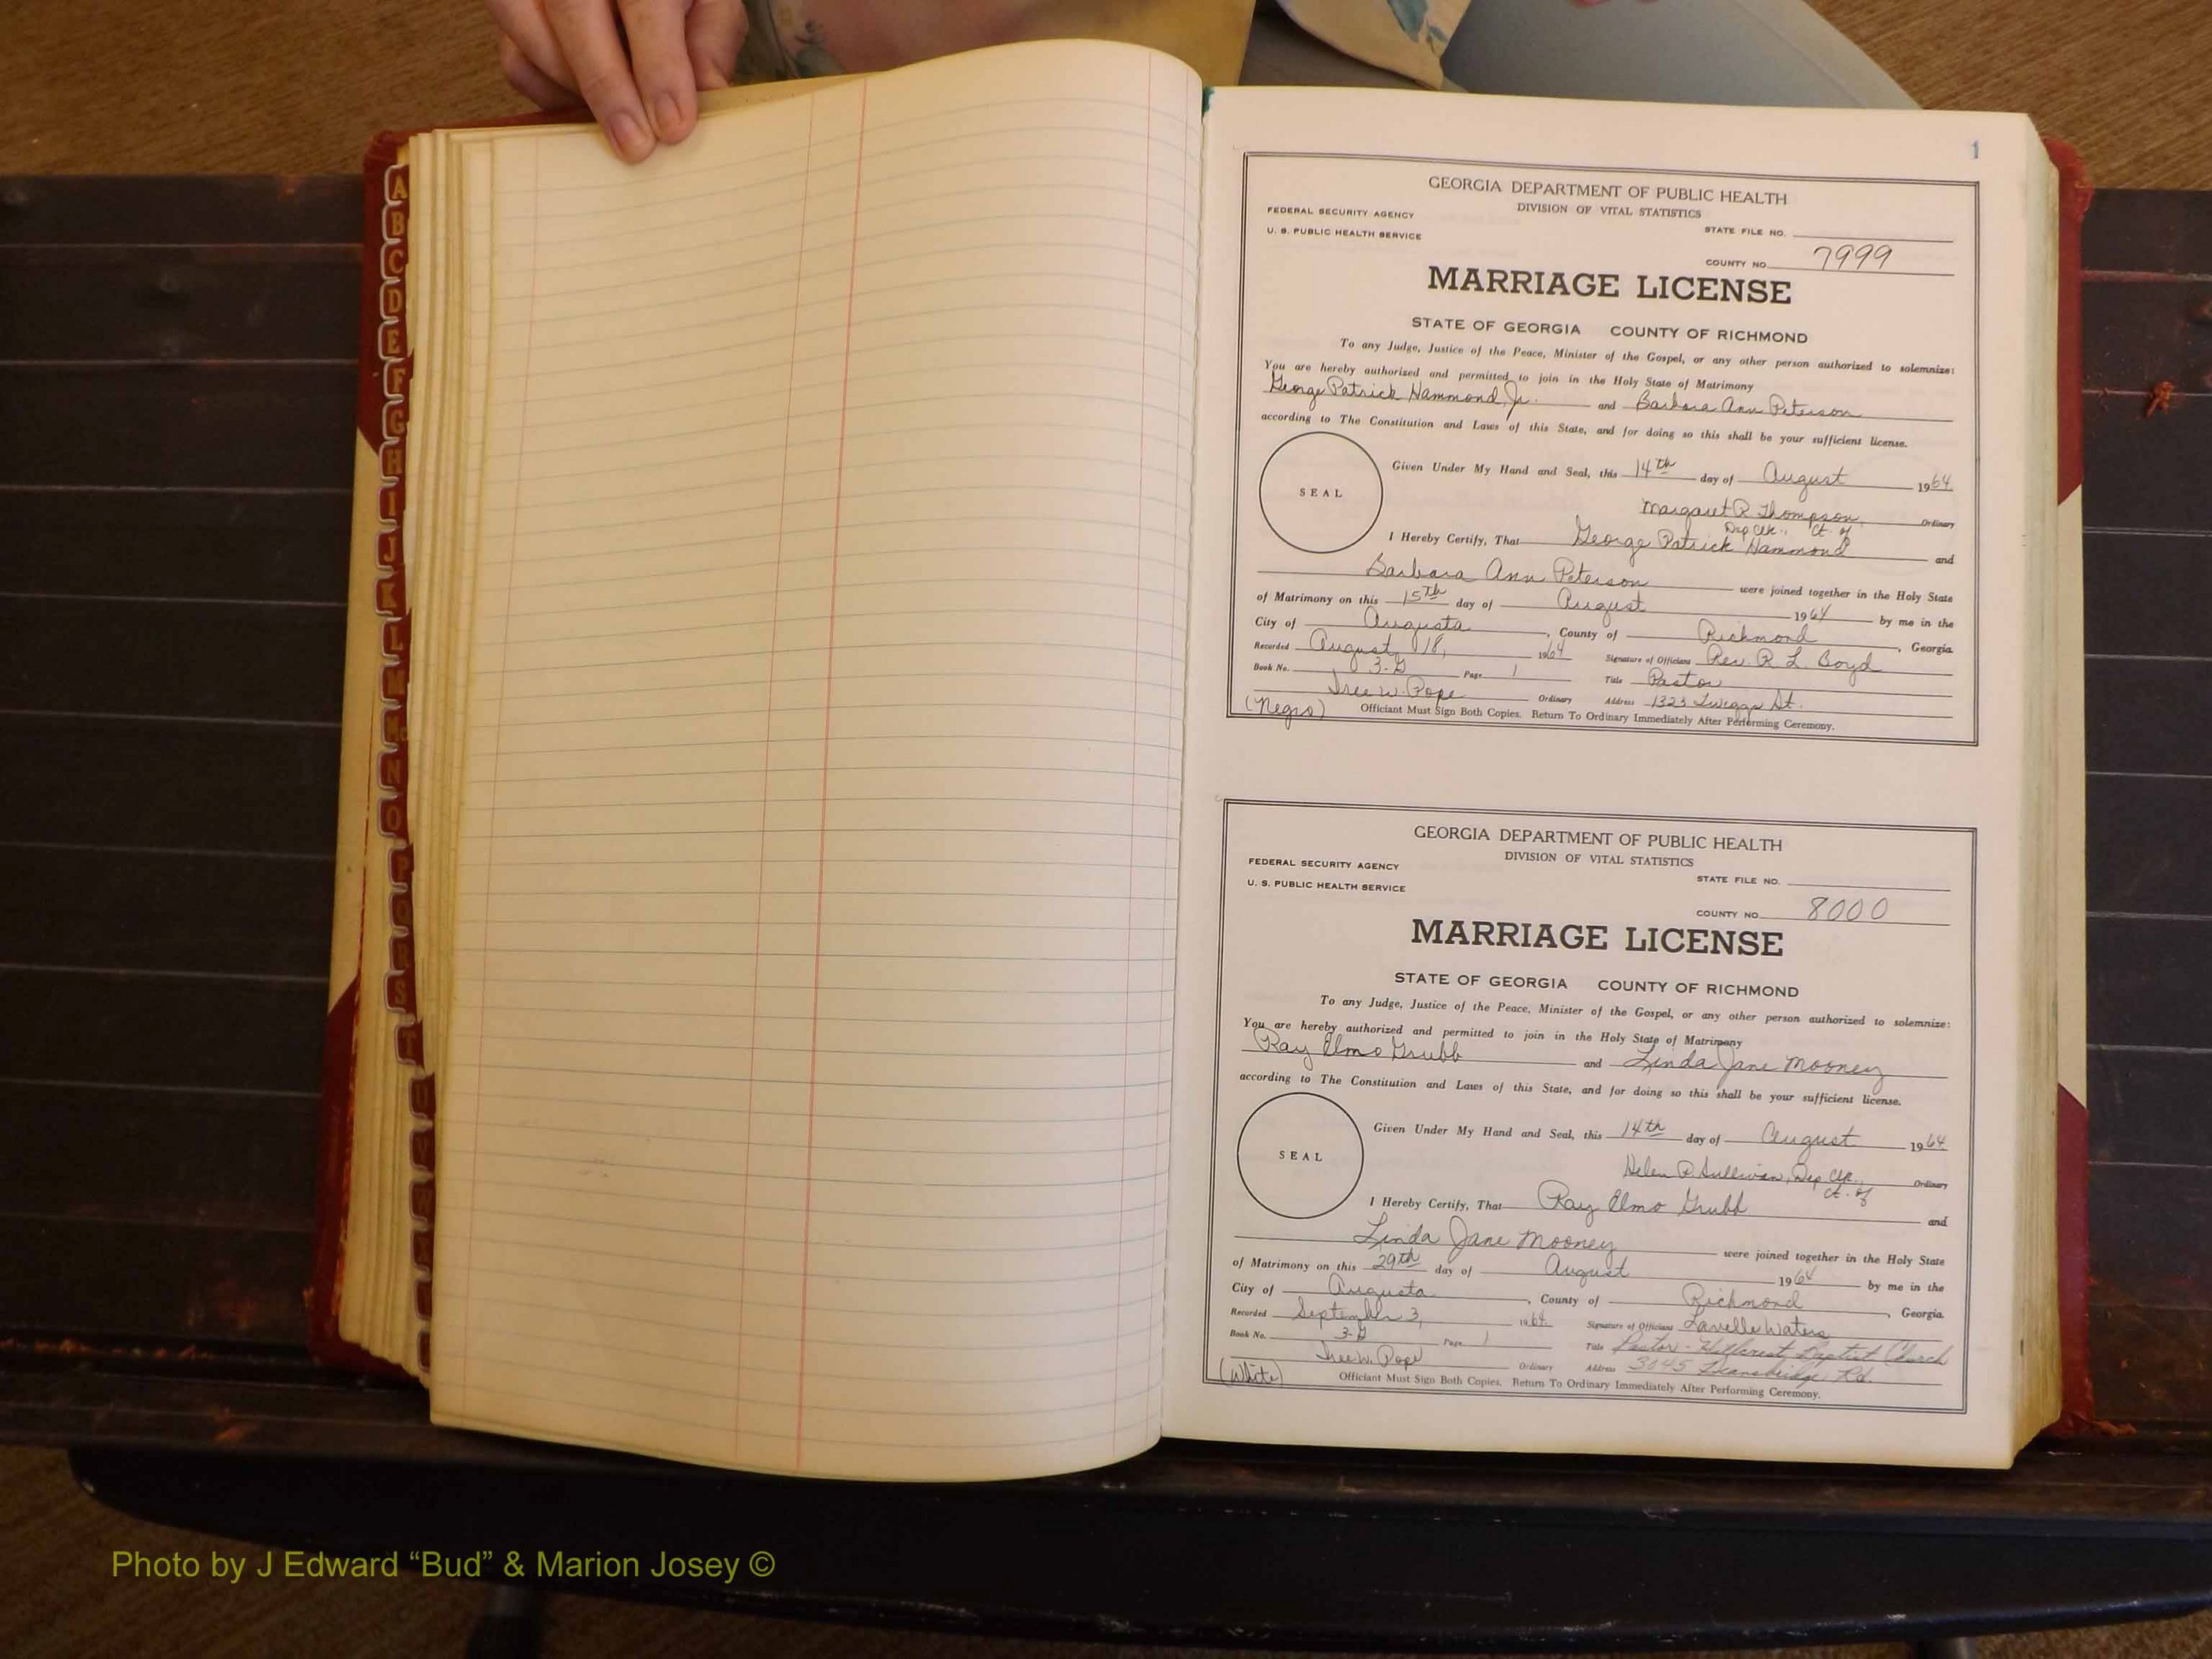 A
B
C
D
E
F
G
H
I
J
K
L
M
Mc
N
O
P
Q
R
S
T
1
GEORGIA DEPARTMENT OF PUBLIC HEALTH
DIVISION OF VITAL STATISTICS
FEDERAL SECURITY AGENCY
U. S. PUBLIC HEALTH SERVICE
STATE FILE NO.
COUNTY NO. 7999
MARRIAGE LICENSE
STATE OF GEORGIA COUNTY OF RICHMOND
To any Judge, Justice of the Peace, Minister of the Gospel, or any other person authorized to solemnize:
You are hereby authorized and permitted to join in the Holy State of Matrimony
George Patrick Hammond, Jr. and Barbara Ann Peterson
according to The Constitution and Laws of this State, and for doing so this shall be your sufficient license.
SEAL
Given Under My Hand and Seal, this 14th day of August 1964
Margaret R Thompson, Ordinary
Dep Clk., Ct. of
I Hereby Certify, That George Patrick Hammond and
Barbara Ann Peterson were joined together in the Holy State
of Matrimony on this 15th day of August 1964 by me in the
City of Augusta, County of Richmond, Georgia.
Recorded August 18, 1964 Signature of Officiant Rev. R L. Boyd
Book No. 3-G Page 1 Title Pastor
Iree W. Pope Ordinary Address 1323 Twiggs St.
(Negro) Officiant Must Sign Both Copies. Return To Ordinary Immediately After Performing Ceremony.
GEORGIA DEPARTMENT OF PUBLIC HEALTH
DIVISION OF VITAL STATISTICS
FEDERAL SECURITY AGENCY
U. S. PUBLIC HEALTH SERVICE
STATE FILE NO.
COUNTY NO. 8000
MARRIAGE LICENSE
STATE OF GEORGIA COUNTY OF RICHMOND
To any Judge, Justice of the Peace, Minister of the Gospel, or any other person authorized to solemnize:
You are hereby authorized and permitted to join in the Holy State of Matrimony
Ray Elmo Grubb and Linda Jane Mooney
according to The Constitution and Laws of this State, and for doing so this shall be your sufficient license.
SEAL
Given Under My Hand and Seal, this 14th day of August 1964
Helen R Sullivan, Dep Clk., Ordinary
Ct. of
I Hereby Certify, That Ray Elmo Grubb and
Linda Jane Mooney were joined together in the Holy State
of Matrimony on this 29th day of August 1964 by me in the
City of Augusta, County of Richmond, Georgia.
Recorded September 3, 1964 Signature of Officiant Lavelle Waters
Book No. 3-G Page 1 Title Pastor - Hillcrest Baptist Church
Iree W. Pope Ordinary Address 3045 Deansbridge Rd.
(White) Officiant Must Sign Both Copies. Return To Ordinary Immediately After Performing Ceremony.
Photo by J Edward “Bud” & Marion Josey ©